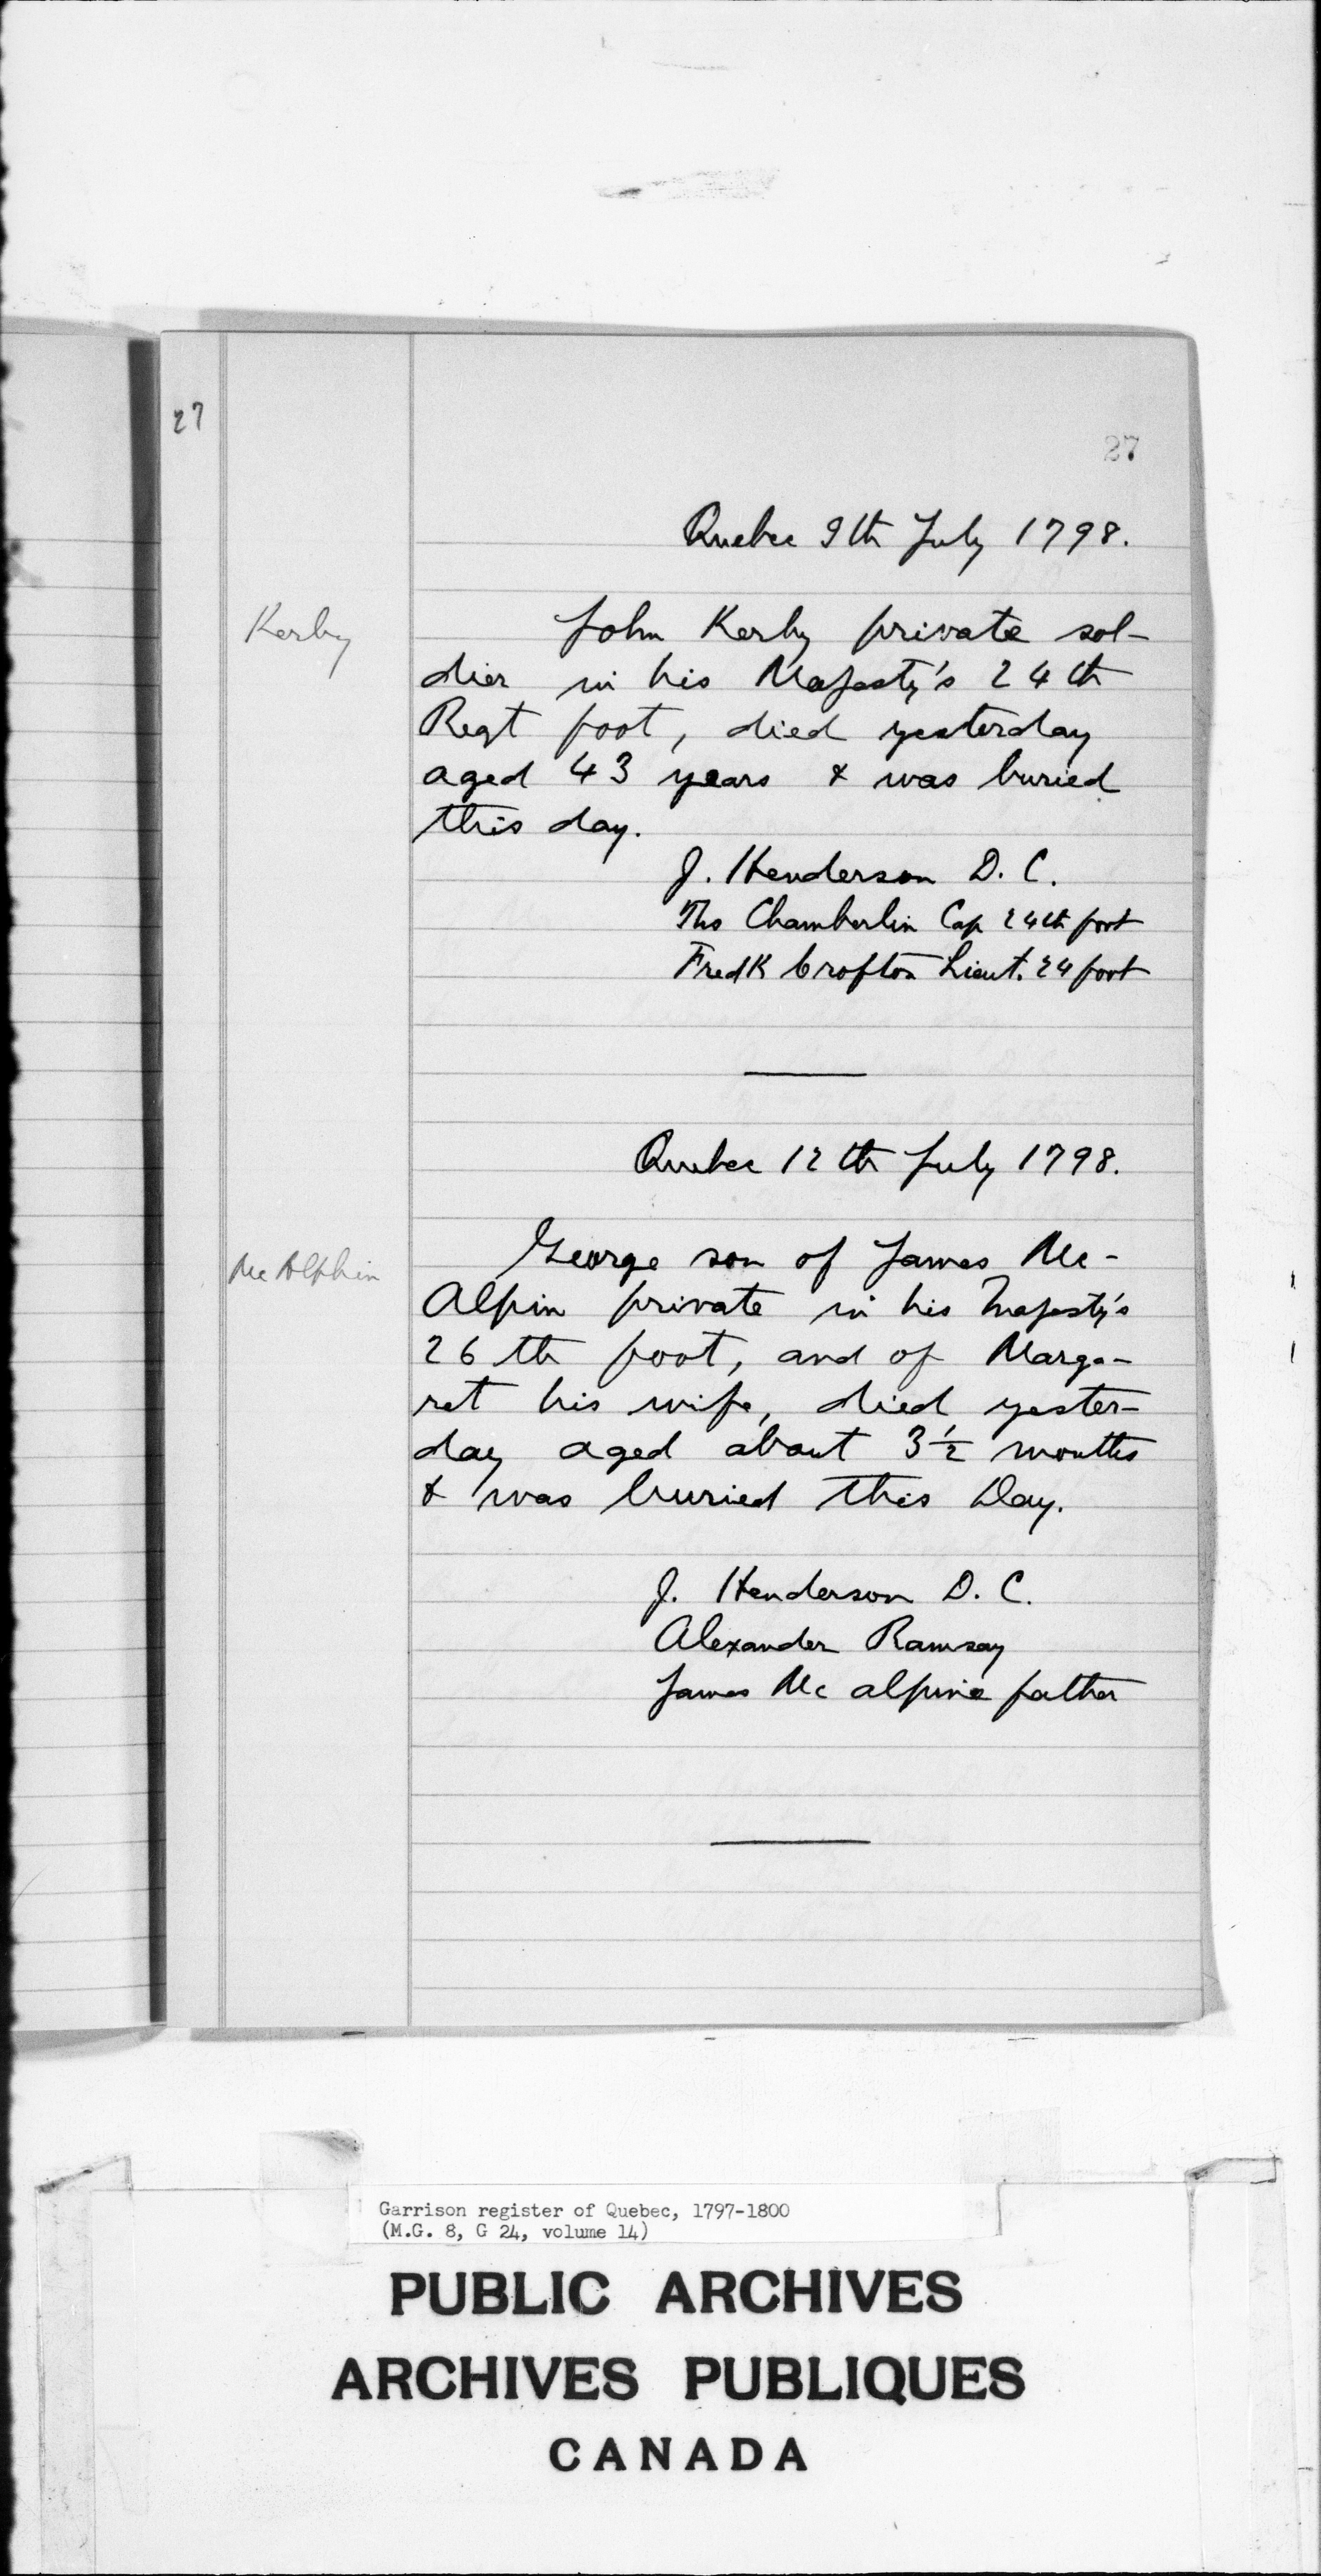 27
27
Quebec 9th July 1798.
Kerby
John Kerby private sol-
dier in his Majesty's 24th
Regt foot, died yesterday
aged 43 years & was buried
this day.
J. Henderson D. C.
Tho Chamberlin Cap 24th foot
Fredk Crofton Lieut. 24 foot
Quebec 12th July 1798.
McAlphin
George son of James Mc-
Alpin private in his Majesty's
26th foot, and of Marga-
ret his wife, died yester-
day aged about 3½ months
& was buried this Day.
J. Henderson D. C.
Alexander Ramsay
James Mc alpine father
Garrison register of Quebec, 1797-1800
(M.G. 8, G 24, volume 14)
PUBLIC ARCHIVES
ARCHIVES PUBLIQUES
CANADA